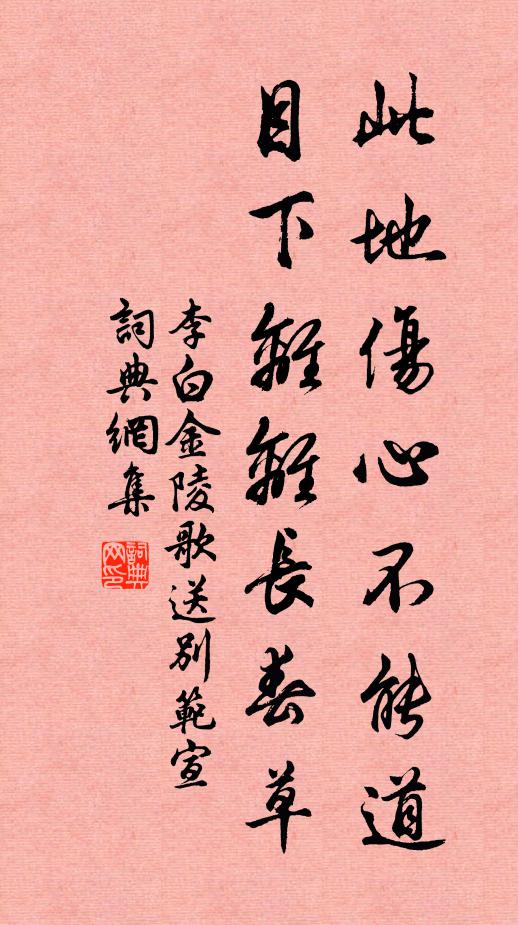 此地傷心不能道
目下離離長春草
李白金陵歌送別範宣
詞典網集
詞典网印